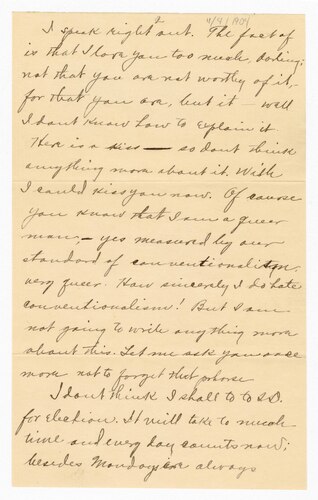 2
11/4/1904
I speak right out. The fact of
is that I love you too much, darling;
not that you are not worthy of it,
for that you are, but it — well
I dont know how to explain it
Here is a kiss — so dont think
anything more about it. Wish
I could kiss you now. Of course
you know that I am a queer
man, — yes measured by our
standard of conventionalism,
very queer. How sincerely I do hate
conventionalism! But I am
not going to write anything more
about this. Let me ask you once
more not to forget that phrase
I dont think I shall to to S.D.
for election. It will take to much
time and every day counts now;
besides Mondays are always